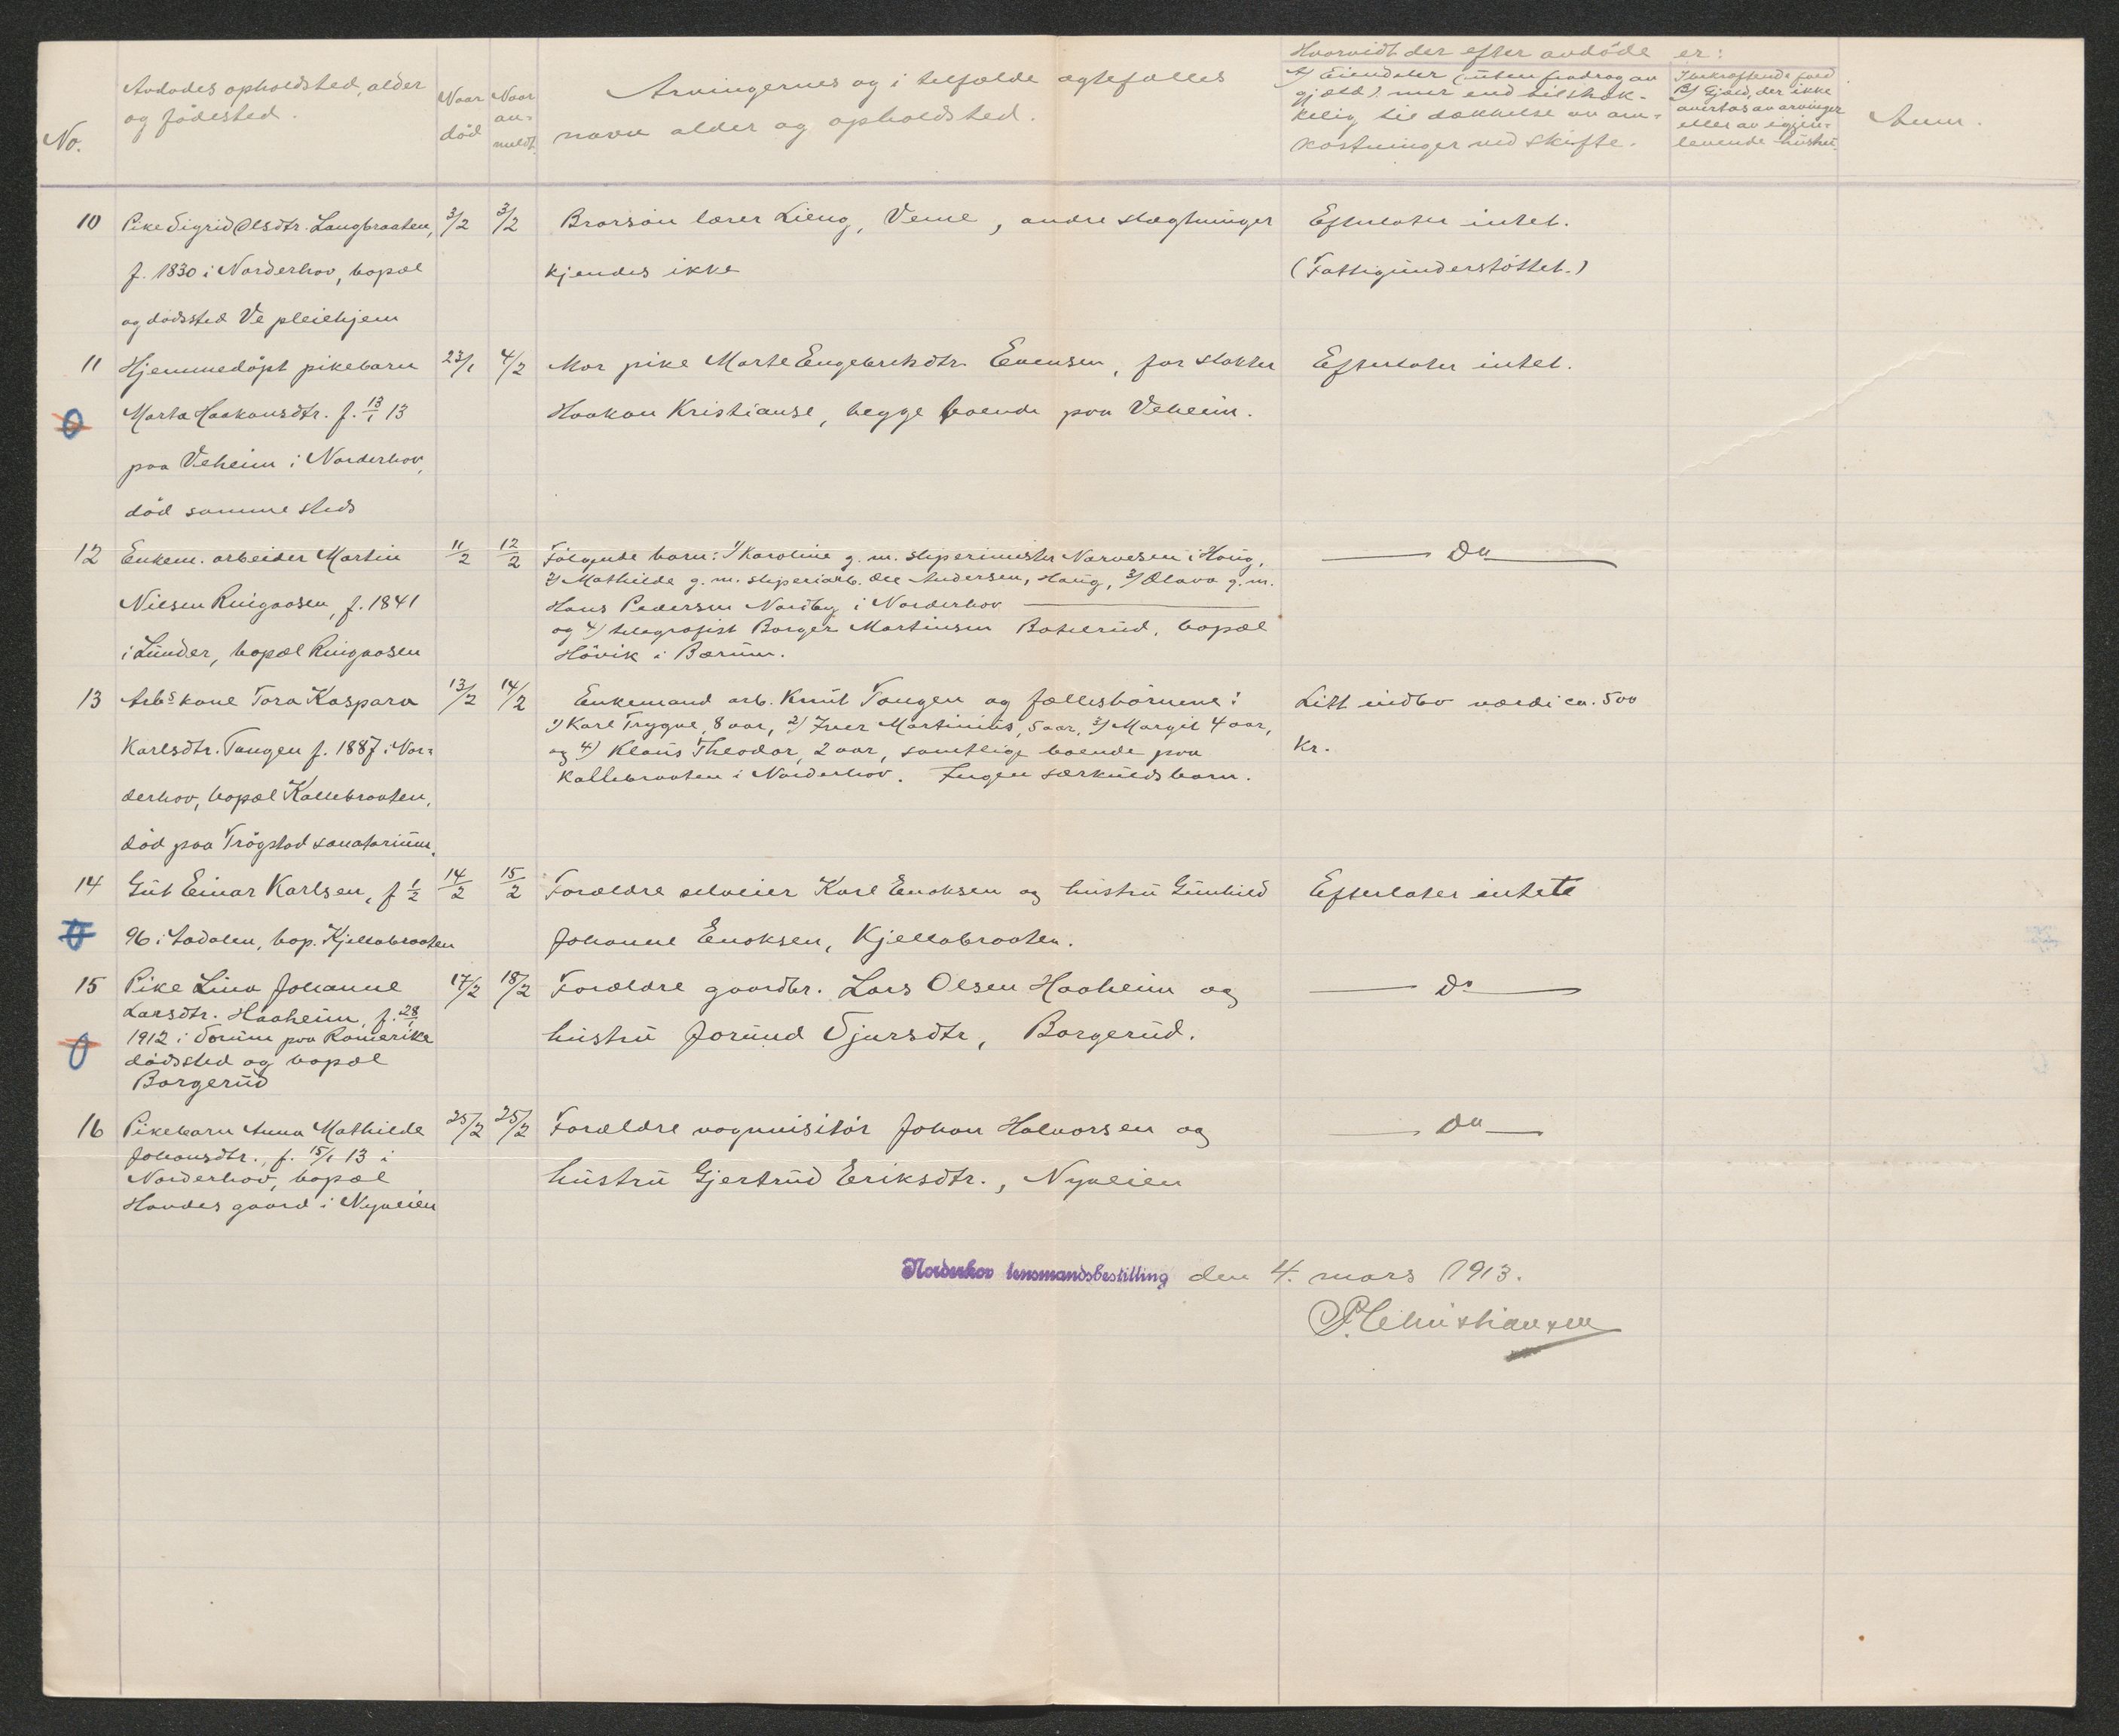 Hvorvidt der efter avdöde er:
No.
Avdødes opholdsted, alder
og födested.
Naar
död
Naar
an-
meldt.
Arvingernes og i tilfælde ægtefælles
navn alder og opholdsted.
A) Eiendeler (uten fradrag av
gjæld) mer end tilstræk-
kelig til dækkelse av om-
kostninger ved skifte.
I bekræftende fald
B) Gjæld, der ikke
overtas av arvinger
eller av igjen-
levende hustru.
Anm.
10 Pike Sigrid Olsdtr. Langbraaten, 3/2 3/2 Brorsön lærer Lieng, Veme, andre slægtninger Efterlater intet.
f. 1830 i Norderhov, bopæl kjendes ikke (Fattigunderstöttet.)
og dödssted Ve pleiehjem
11 Hjemmedöpt pikebarn 23/1 4/2 Mor pike Marte Engebretsdtr. Evensen, far slakter Efterlater intet.
Marta Haakonsdtr. f. 13/1 13 Haakon Kristianse, begge boende paa Veheim.
paa Veheim i Norderhov,
död samme steds
12 Enkem. arbeider Martin 11/2 12/2 Fölgende barn: 1) Karoline g. m. sliperimester Narvesen i Haug, Do
2) Mathilde g. m. sliperiarb. Ole Andersen, Haug, 3) Olava g. m.
Nilsen Ringaasen, f. 1841 Hans Pedersen Nordby i Norderhov
og 4) telegrafist Borger Martinsen Botilrud, bopæl
i Lunder, bopæl Ringaasen Hövik i Bærum.
13 Arbs kone Tora Kaspara 13/2 14/2 Enkemand arb. Knut Tangen og fællesbörnene: Litt indbo værdi ca. 500
1) Karl Trygve, 8 aar, 2) Iver Martinius, 5 aar, 3) Margit 4 aar,
Karlsdtr. Tangen f. 1887 i Nor- og 4) Klaus Theodor, 2 aar, samtlige boende paa kr.
Kallebraaten i Norderhov. Ingen særkuldsbarn.
derhov, bopæl Kallebraaten,
död paa Trögstad sanatorium.
14 Gut Einar Karlsen, f 1/2 14/2 15/2 Forældre selveier Karl Enoksen og hustru Gunhild Efterlater intet
96 i Aadalen, bop. Kjellebraaten Johanne Enoksen, Kjellabraaten.
15 Pike Lina Johanne 17/2 18/2 Forældre gaardbr. Lars Olsen Haaheim og Do
Larsdtr. Haaheim, f. 28/1
1912 i Sörum paa Romerike hustru Jorund Sjursdtr, Borgerud.
dödssted og bopæl
Borgerud
16 Pikebarn Anna Mathilde 25/2 25/2 Forældre vognvisitör Johan Halvorsen og Do
Johansdtr., f. 15/1 13 i
Norderhov, bopæl hustru Gjertrud Eriksdtr., Nyveien
Hovdes gaard i Nyveien
Norderhov lensmandsbestilling den 4. mars 1913.
P. Christiansen